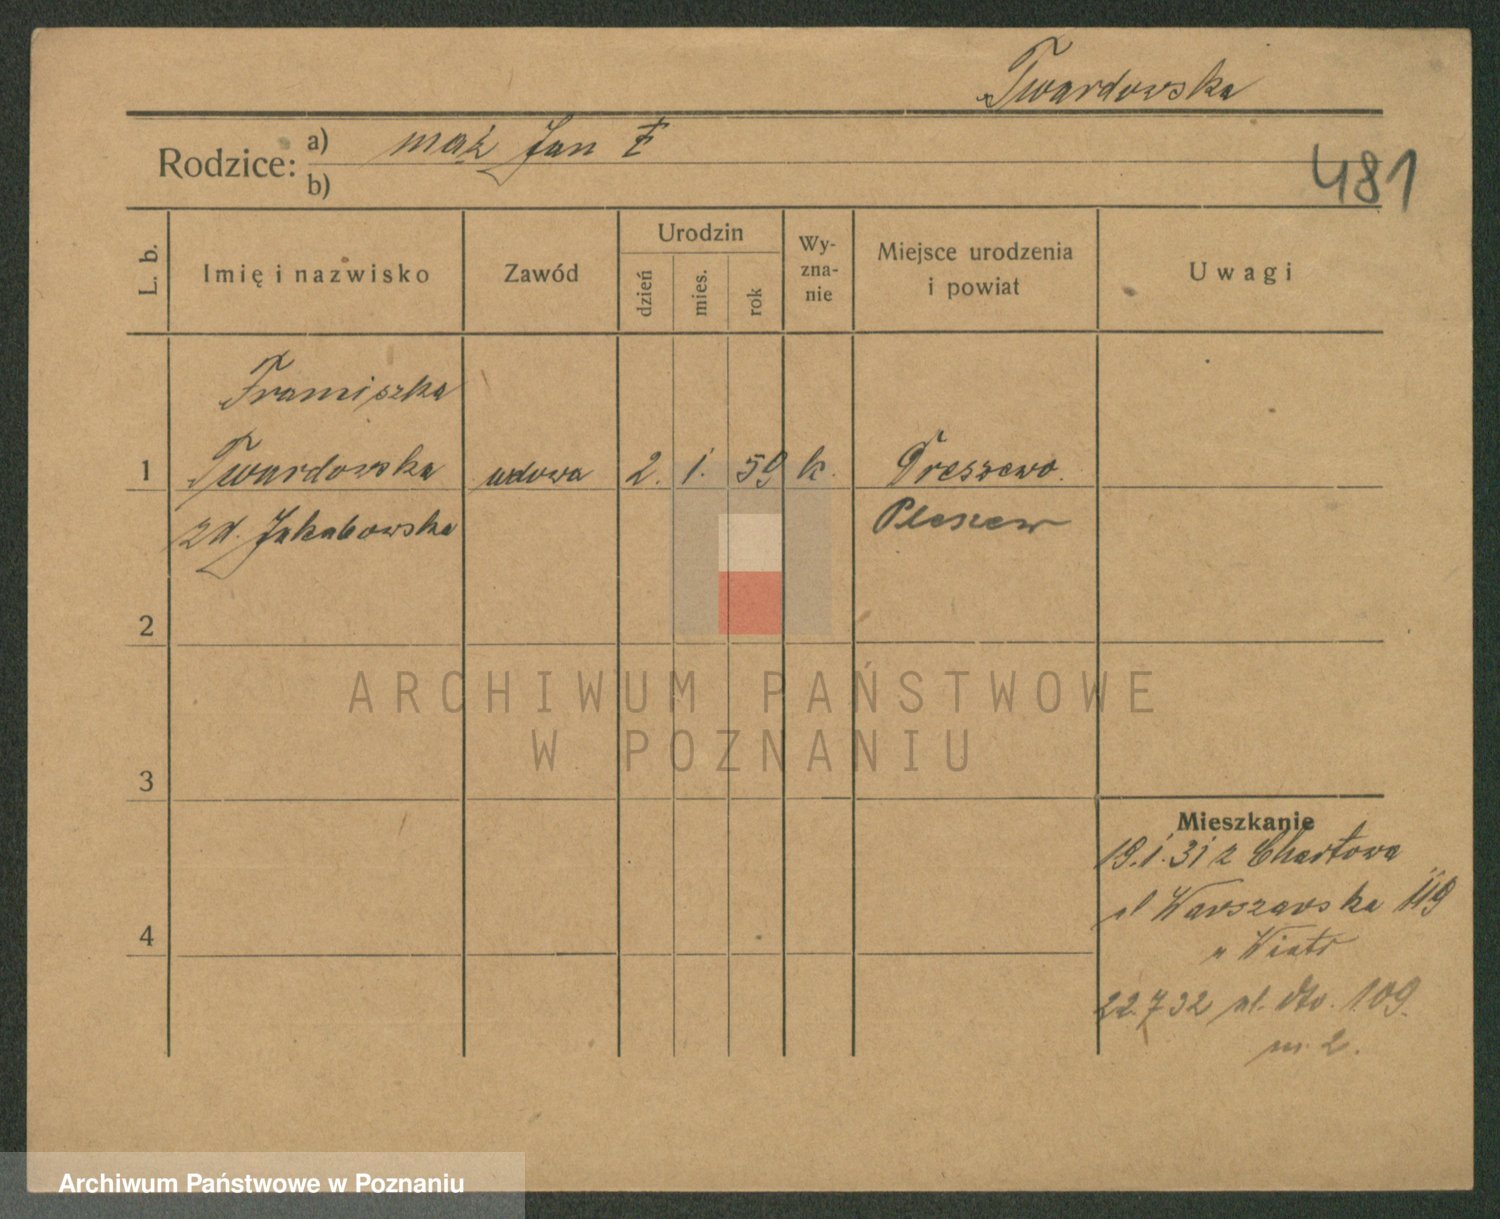 Twardowska
Rodzice: a) mąż Jan ‡
b)
481
L. b.
Imię i nazwisko
Zawód
Urodzin
dzień
mies.
rok
Wy-
zna-
nie
Miejsce urodzenia
i powiat
Uwagi
Franciszka
1 Twardowska wdowa 2. 1. 59 k. Preszewo
zd. Jakubowska Pleszew
2
3
4
Mieszkanie
19.1.31 z Chartowa
ul Warszawska 119
u Wiatr
22.7 32 ul. dto. 109.
m. 2.
ARCHIWUM PAŃSTWOWE
W POZNANIU
Archiwum Państwowe w Poznaniu